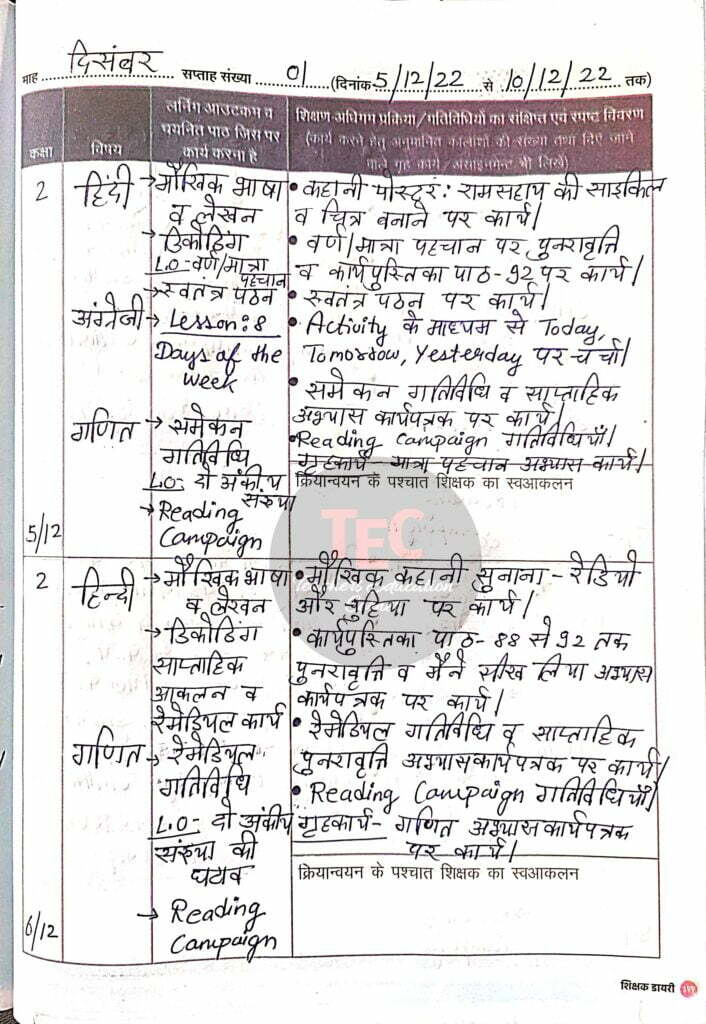 माह दिसंबर सप्ताह संख्या 01 (दिनांक 5/12/22 से 10/12/22 तक)
कक्षा विषय
लर्निंग आउटकम व
चयनित पाठ जिस पर
कार्य करना है
शिक्षण अधिगम प्रक्रिया/गतिविधियों का संक्षिप्त एवं स्पष्ट विवरण
(कार्य करने हेतु अनुमानित कालांशों की संख्या तथा दिए जाने
वाले गृह कार्य/असाइनमेन्ट भी लिखें)
2
हिंदी
→ मौखिक भाषा
व लेखन
→ डिकोडिंग
L.O- वर्ण/मात्रा
पहचान
→ स्वतंत्र पठन
अंग्रेजी → Lesson:8
Days of the
week
गणित → समेकन
गतिविधि
L.O- दो अंकीय
संख्या
→ Reading
Campaign
5/12
• कहानी पोस्टर: रामसहाय की साइकिल
व चित्र बनाने पर कार्य।
• वर्ण/मात्रा पहचान पर पुनरावृत्ति
व कार्यपुस्तिका पाठ-92 पर कार्य।
• स्वतंत्र पठन पर कार्य।
• Activity के माध्यम से Today,
Tomorrow, Yesterday पर चर्चा।
• समेकन गतिविधि व साप्ताहिक
अभ्यास कार्यपत्रक पर कार्य।
• Reading Campaign गतिविधियाँ।
गृहकार्य- मात्रा पहचान अभ्यास कार्य।
क्रियान्वयन के पश्चात शिक्षक का स्वआकलन
TEC
Teachers Education
2
हिन्दी
→ मौखिक भाषा
व लेखन
→ डिकोडिंग
साप्ताहिक
आकलन व
रेमेडियल कार्य
गणित → रेमेडियल
गतिविधि
L.O- दो अंकीय
संख्या की
घटाव
→ Reading
Campaign
6/12
• मौखिक कहानी सुनाना - रेडियो
और गुड़िया पर कार्य।
• कार्यपुस्तिका पाठ- 88 से 92 तक
पुनरावृत्ति व मैंने सीख लिया अभ्यास
कार्यपत्रक पर कार्य।
• रेमेडियल गतिविधि व साप्ताहिक
पुनरावृत्ति अभ्यासकार्यपत्रक पर कार्य।
• Reading Campaign गतिविधियाँ।
गृहकार्य- गणित अभ्यासकार्यपत्रक
पर कार्य।
क्रियान्वयन के पश्चात शिक्षक का स्वआकलन
शिक्षक डायरी